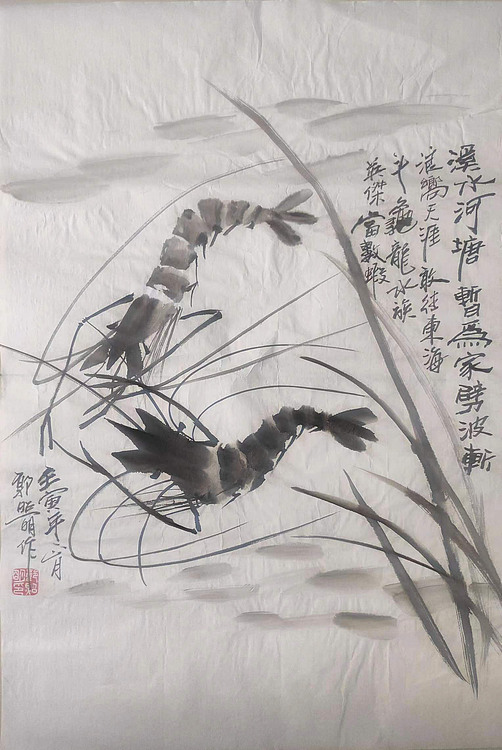 溪水河塘暫為家劈波斬
浪嚮天涯敢往東海
斗龜龍水族
英傑當數蝦
壬寅年月
鄭照明作